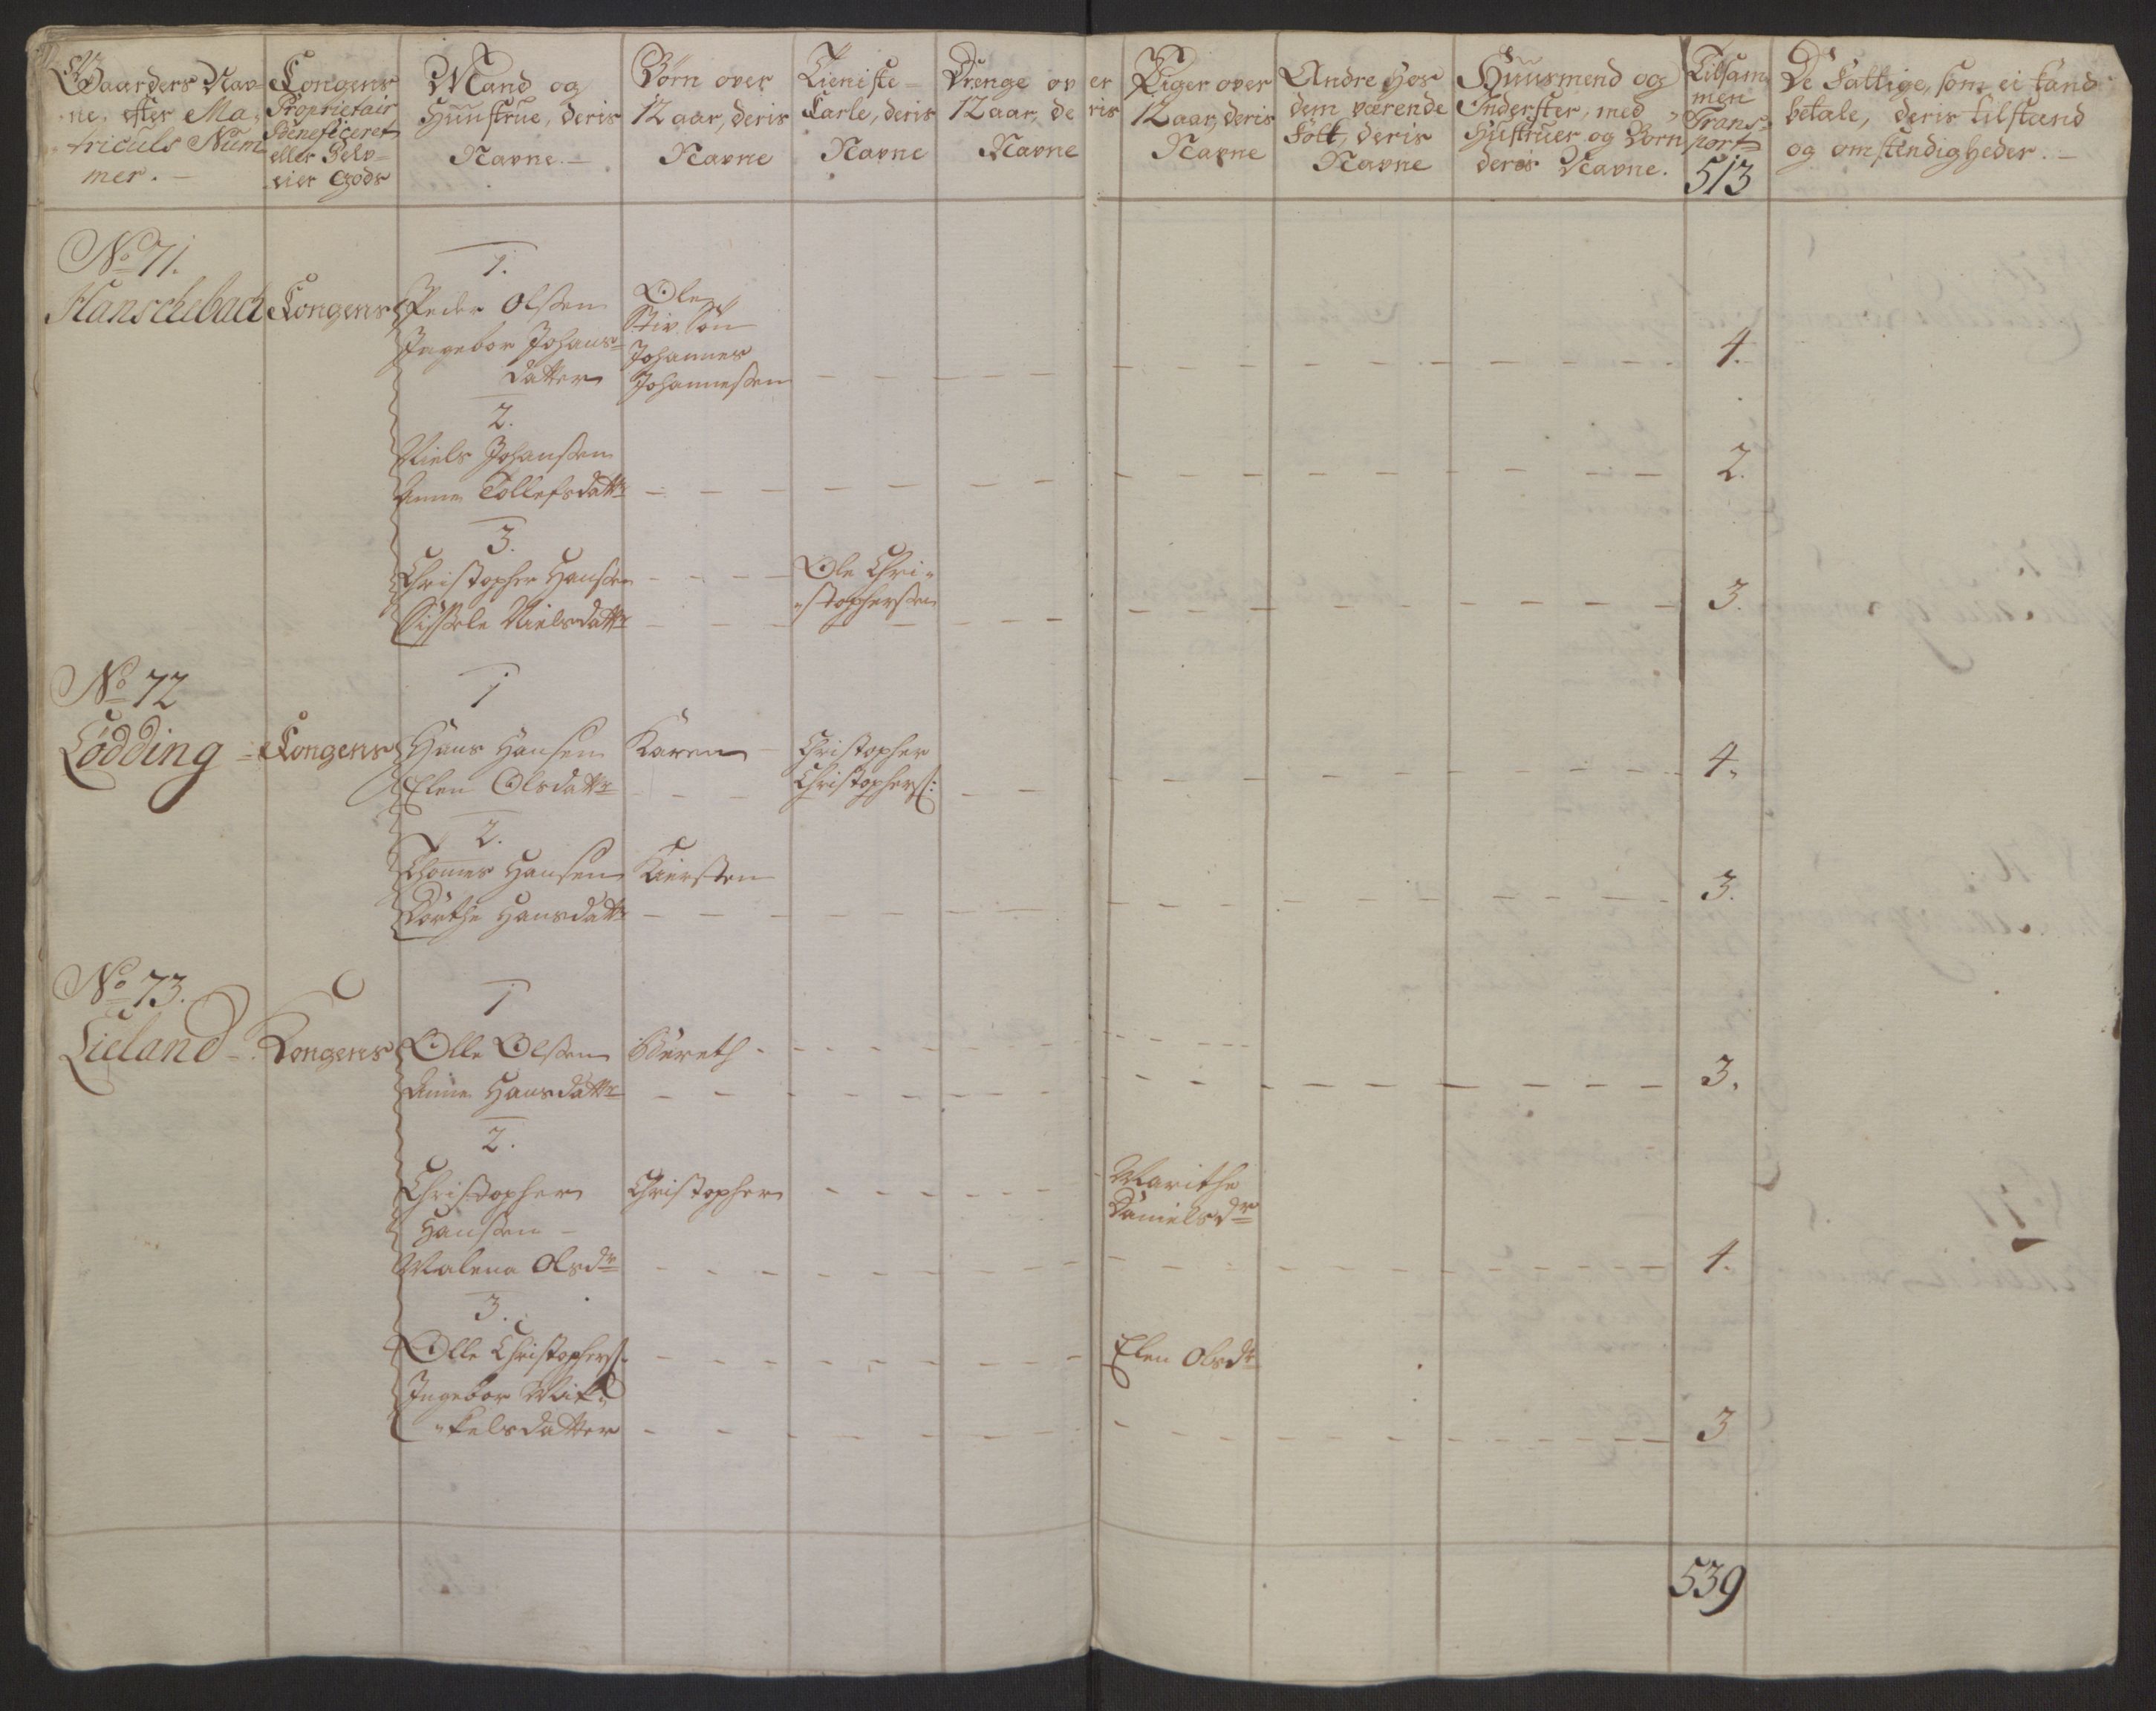 Gaarders Nav-
ne, efter Ma-
triculs Num
mer. -
Congens
Proprietair
Beneficeret
eller Selv-
eier Gods
Mand og
Huustrue, deris
Navne. -
Börn over
12 aar, deris
Navne
Tieniste-
Carle, deris
Navne
Drenge over
12 aar, deris
Navne
Piger over
12 aar, deris
Navne
Andre hos
dem værende
Fölk, deris
Navne
Huusmend og
Inderster, med
Hustruer og Born
deres Navne.
Tilsam-
men
Trans-
port
513
De Fattige, som ei kand
betale, deris tilstand
og omstendigheder. -
No 71.
Hanschebach Congens
1.
Peder Olssen
Ingebor Johans-
datter
Ole
Stiv Sön
Johannes
Johannessen
4.
2.
Niels Johanssen
Anne Tollefsdattr
2.
3.
Christopher Hanssen
Sissele Nielsdattr
Ole Chri-
stopherssen
3.
No 72
Lödding - Congens
1
Hans Hansen
Elen Olsdattr
Karen
Christopher
Christophers:
4.
2.
Thomes Hansen
Dorthe Hansdattr
Kiersten
3.
No 73.
Lieland - Kongens
1
Olle Olssen
Anne Hansdattr
Bereth
3.
2.
Christopher
Hanssen -
Malena Olsdr
Christopher
Marithe
Danielsdr
4.
3.
Olle Christophers.
Ingebor Mik-
kelsdatter
Elen Olsdr
3
539